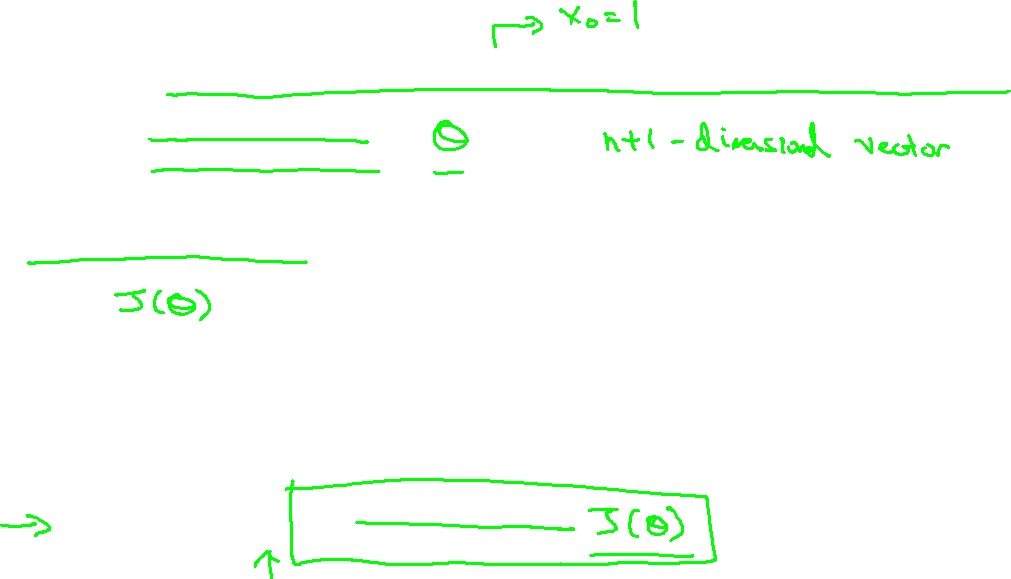 x₀ = 1
Θ n+1 - dimensional vector
J(Θ)
J(Θ)